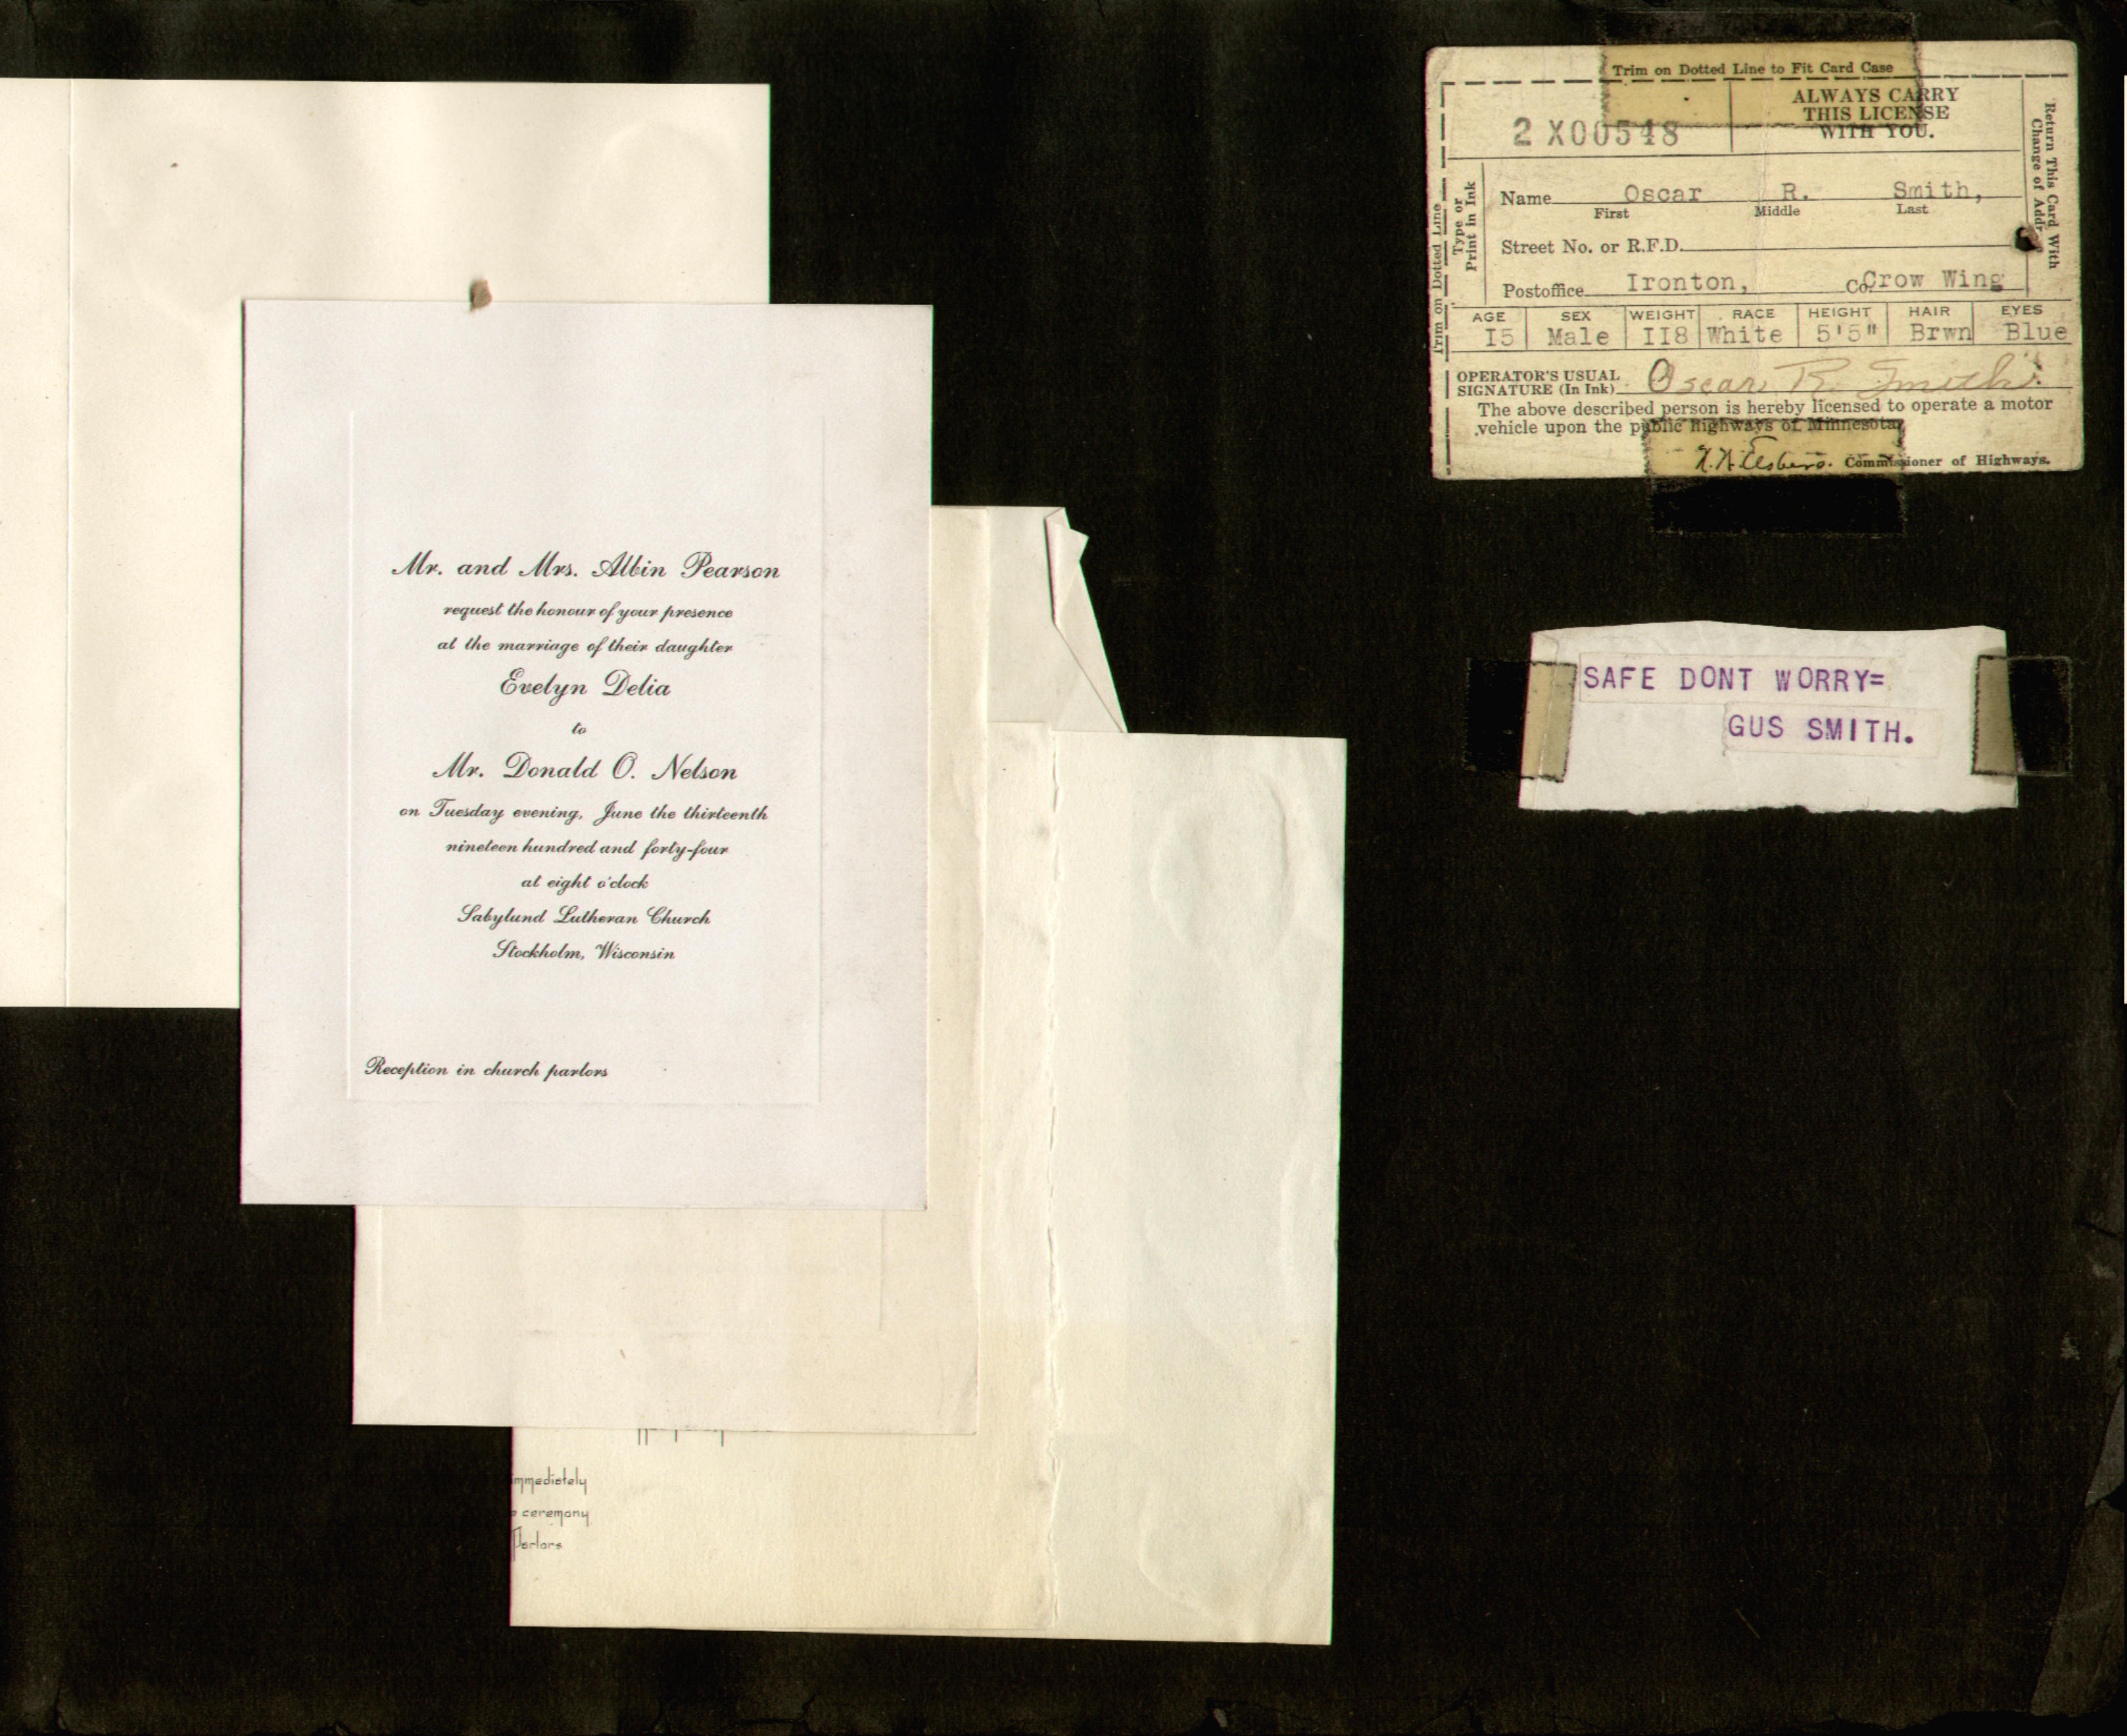 Mr. and Mrs. Albin Pearson
request the honour of your presence
at the marriage of their daughter
Evelyn Delia
to
Mr. Donald O. Nelson
on Tuesday evening, June the thirteenth
nineteen hundred and forty-four
at eight o'clock
Sabylund Lutheran Church
Stockholm, Wisconsin
Reception in church parlors
immediately
ceremony
Parlors
Trim on Dotted Line to Fit Card Case
2 X00548
ALWAYS CARRY
THIS LICENSE
WITH YOU.
Return This Card With
Change of
Trim on Dotted Line
Type or
Print in Ink
Name Oscar R. Smith,
First Middle Last
Street No. or R.F.D.
Postoffice Ironton, Co. Crow Wing
AGE SEX WEIGHT RACE HEIGHT HAIR EYES
I5 Male II8 White 5'5" Brwn Blue
OPERATOR'S USUAL
SIGNATURE (In Ink) Oscar R. Smith
The above described person is hereby licensed to operate a motor
vehicle upon the public highways of Minnesota
Commissioner of Highways.
SAFE DONT WORRY=
GUS SMITH.